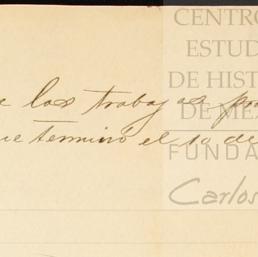 CENTRO
ESTUD
DE HIST
DE MÉX
FUNDA
Carlos
e los trabajos po
ue terminó el 10 de